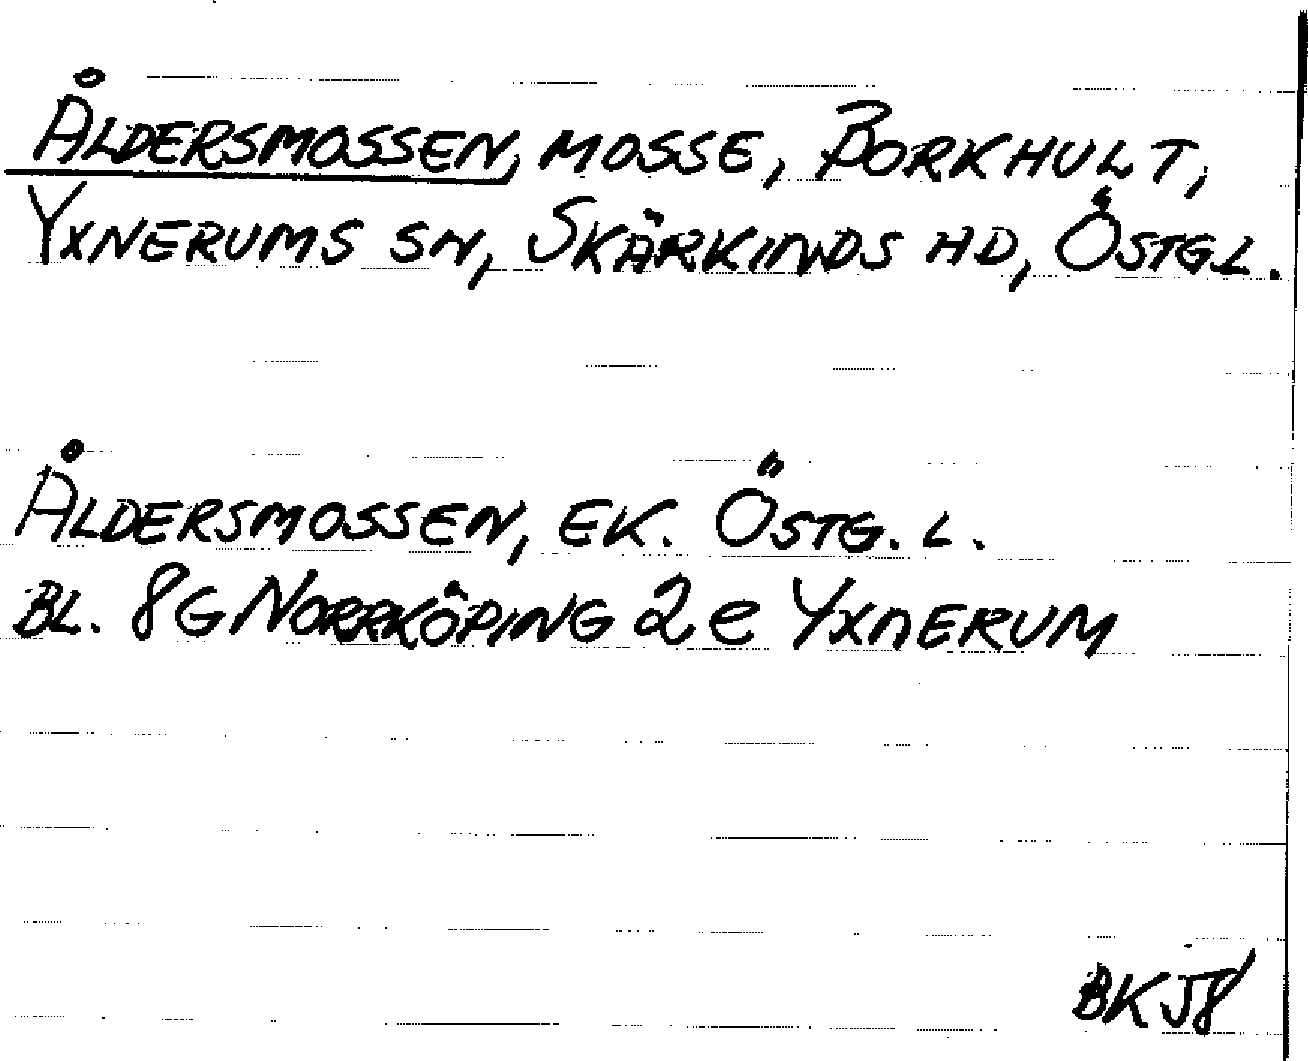 ÅLDERSMOSSEN, MOSSE, BORKHULT,
YXNERUMS SN, SKÄRKINDS HD, ÖSTGL.
ÅLDERSMOSSEN, EK. ÖSTG. L.
BL. 8G NORRKÖPING 2e YXNERUM
BKJ8